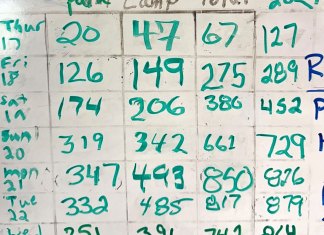 Camp Total
Thur 17 20 47 67 127
Fri 18 126 149 275 289 R
Sat 19 174 206 386 452 P
Sun 20 319 342 661 729
mon 21 347 493 850 876
Tue 22 332 485 817 879
Wed 351 391 742 864